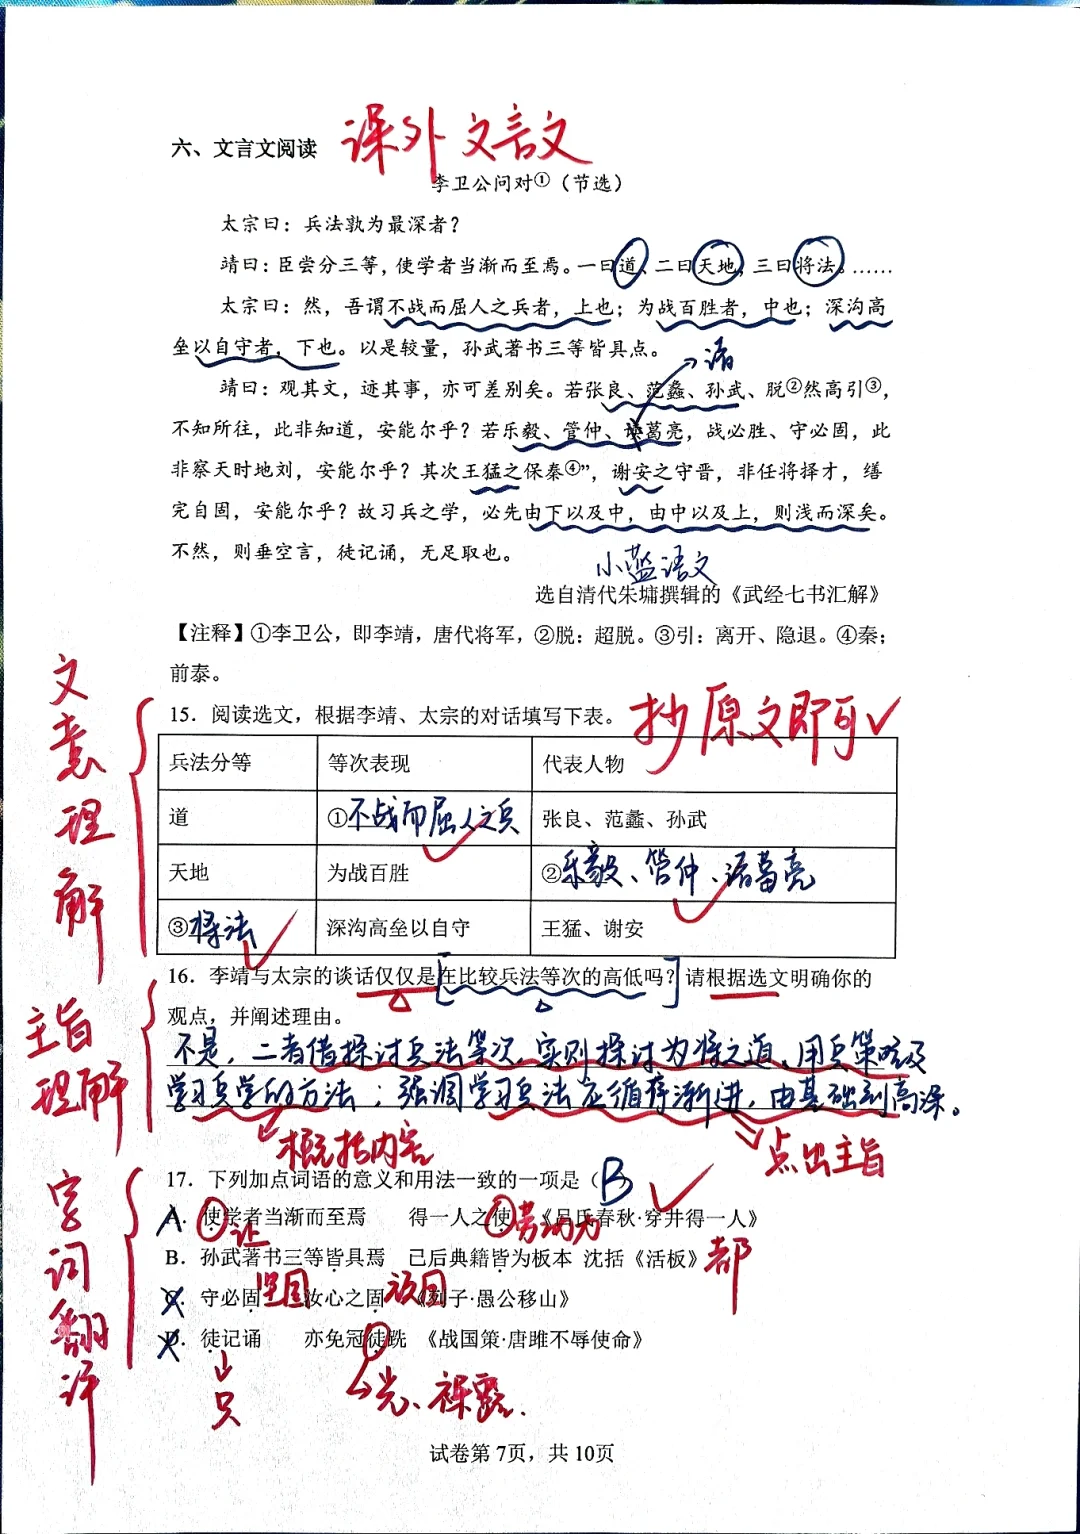 六、文言文阅读 课外文言文
李卫公问对①（节选）
太宗曰：兵法孰为最深者？
靖曰：臣尝分三等，使学者当渐而至焉。一曰道、二曰天地，三曰将法。……
太宗曰：然，吾谓不战而屈人之兵者，上也；为战百胜者，中也；深沟高
垒以自守者，下也。以是较量，孙武著书三等皆具点。
诸
靖曰：观其文，迹其事，亦可差别矣。若张良、范蠡、孙武、脱②然高引③，
不知所往，此非知道，安能尔乎？若乐毅、管仲、葛亮，战必胜、守必固，此
非察天时地刘，安能尔乎？其次王猛之保秦④”，谢安之守晋，非任将择才，缮
完自固，安能尔乎？故习兵之学，必先由下以及中，由中以及上，则浅而深矣。
不然，则垂空言，徒记诵，无足取也。
小蓝语文
选自清代朱墉撰辑的《武经七书汇解》
【注释】①李卫公，即李靖，唐代将军，②脱：超脱。③引：离开、隐退。④秦；
前秦。
文意理解
15．阅读选文，根据李靖、太宗的对话填写下表。 抄原文即可
兵法分等 等次表现 代表人物
道 ①不战而屈人之兵 张良、范蠡、孙武
天地 为战百胜 ②乐毅、管仲、诸葛亮
③将法 深沟高垒以自守 王猛、谢安
主旨理解
16．李靖与太宗的谈话仅仅是在比较兵法等次的高低吗？请根据选文明确你的
观点，并阐述理由。
不是，二者借探讨兵法等次，实则探讨为将之道、用兵策略及
学习兵学的方法；强调学习兵法应循序渐进，由基础到高深。
概括内容 点出主旨
字词翻译
17．下列加点词语的意义和用法一致的一项是（B
A．使学者当渐而至焉 让 得一人之使 劳动力 《吕氏春秋·穿井得一人》
B．孙武著书三等皆具焉 已后典籍皆为板本 沈括《活板》 都
C．守必固 坚固 汝心之固 顽固 《列子·愚公移山》
D．徒记诵 亦免冠徒跣 《战国策·唐雎不辱使命》
只 光、裸露.
试卷第7页，共10页